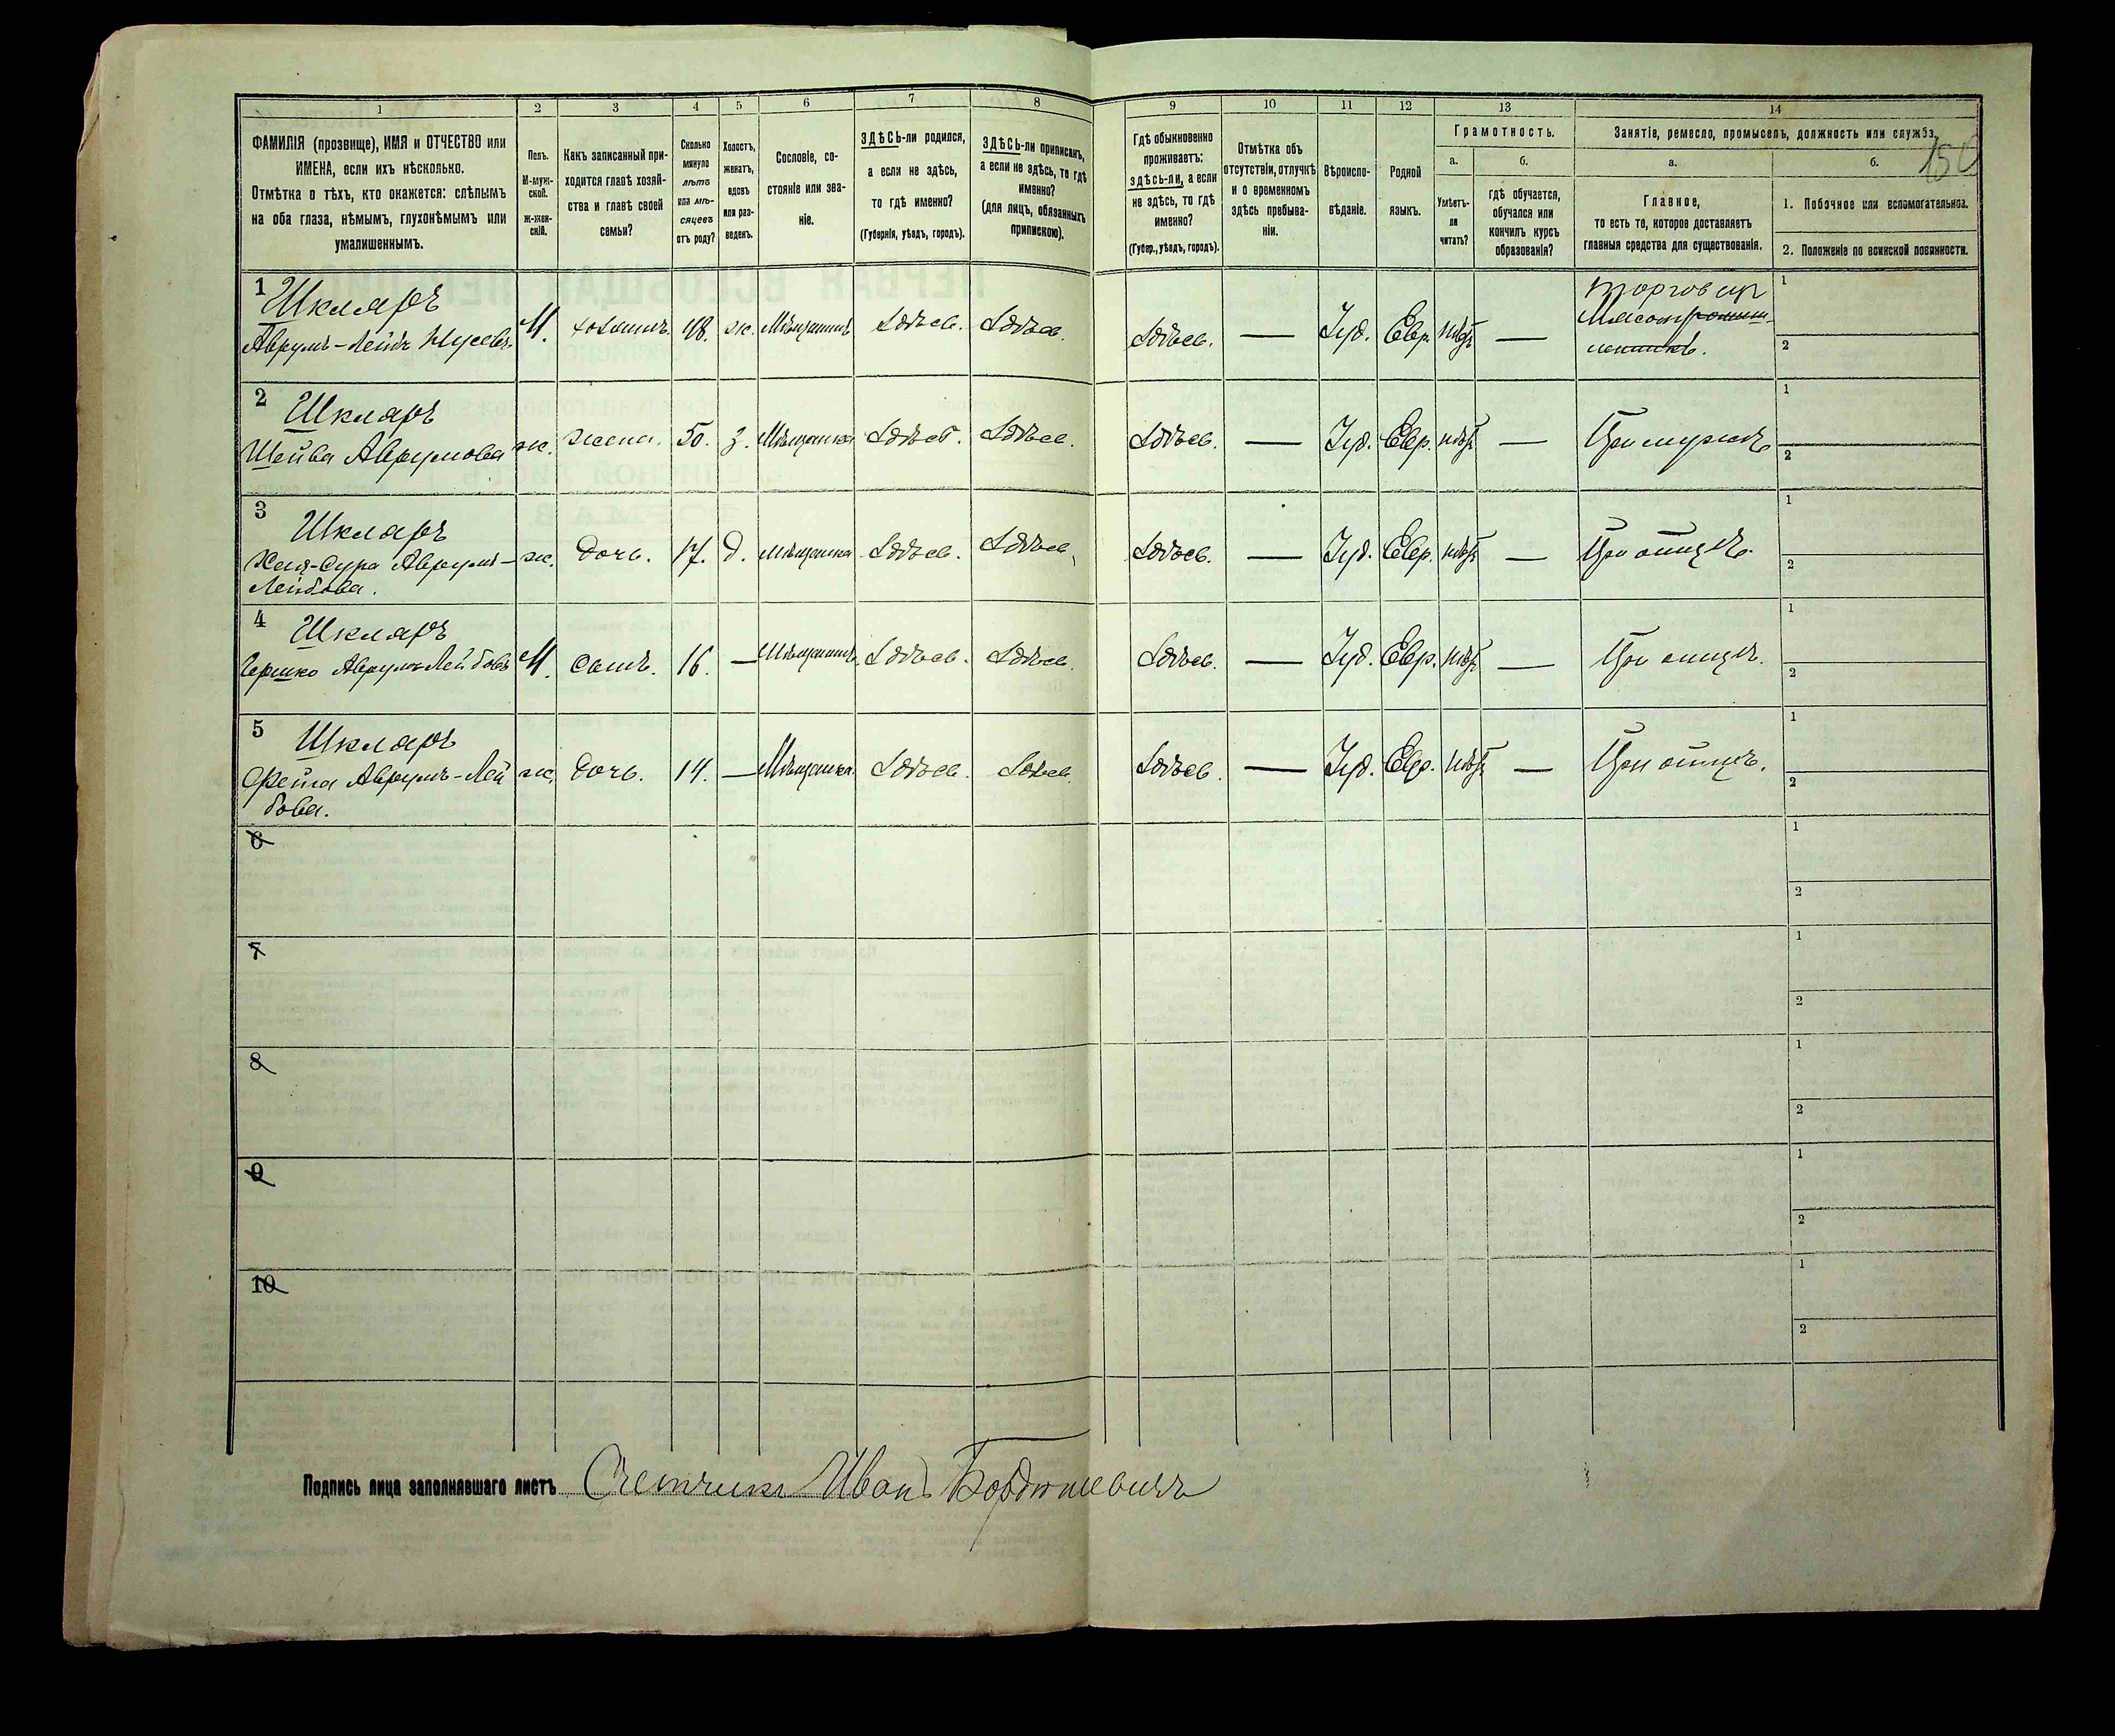 1 2 3 4 5 6 7 8 9 10 11 12 13 14
150
ФАМИЛІЯ (прозвище), ИМЯ и ОТЧЕСТВО или
ИМЕНА, если ихъ нѣсколько.
Отмѣтка о тѣхъ, кто окажется: слѣпымъ
на оба глаза, нѣмымъ, глухонѣмымъ или
умалишеннымъ.
Полъ.
М-муж-
ской.
Ж-жен-
скій.
Какъ записанный при-
ходится главѣ хозяй-
ства и главѣ своей
семьи?
Сколько
минуло
лѣтъ
или мѣ-
сяцевъ
отъ роду?
Холостъ,
женатъ,
вдовъ
или раз-
веденъ.
Сословіе, со-
стояніе или зва-
ніе.
ЗДѢСЬ-ли родился,
а если не здѣсь,
то гдѣ именно?
(Губернія, уѣздъ, городъ).
ЗДѢСЬ-ли приписанъ,
а если не здѣсь, то гдѣ
именно?
(для лицъ, обязанныхъ
припискою).
Гдѣ обыкновенно
проживаетъ:
здѣсь-ли, а если
не здѣсь, то гдѣ
именно?
(Губер., уѣздъ, городъ).
Отмѣтка объ
отсутствіи, отлучкѣ
и о временномъ
здѣсь пребыва-
ніи.
Вѣроиспо-
вѣданіе.
Родной
языкъ.
Грамотность.
а.
Умѣетъ-
ли
читать?
б.
гдѣ обучается,
обучался или
кончилъ курсъ
образованія?
Занятіе, ремесло, промыселъ, должность или служба.
а.
Главное,
то есть то, которое доставляетъ
главныя средства для существованія.
б.
1. Побочное или вспомогательное.
2. Положеніе по воинской повинности.
1 Шкляръ
Аврумъ-Лейбъ Нусевъ. М. хозяинъ. 48. ж. Мѣщанинъ Здѣсь. Здѣсь. Здѣсь. — Іуд. Евр. нѣтъ — торговця
Мясопромыш-
ленникъ.
1
2
2 Шкляръ
Шейва Аврумова ж. жена. 50. з. Мѣщанка Здѣсь. Здѣсь. Здѣсь. — Іуд. Евр. нѣтъ — При мужѣ
1
2
3 Шкляръ
Хая-Сура Аврумъ-
Лейбова. ж. дочь. 17. д. мѣщанка Здѣсь. Здѣсь. Здѣсь. — Іуд. Евр. нѣтъ — При отцѣ.
1
2
4 Шкляръ
Гершко Аврумъ Лейбовъ М. сынъ. 16. — Мѣщанинъ Здѣсь. Здѣсь. Здѣсь. — Іуд. Евр. нѣтъ — При отцѣ.
1
2
5 Шкляръ
Фейга Аврумъ-Лей
бова. ж. дочь. 14. — Мѣщанка. Здѣсь. Здѣсь. Здѣсь. — Іуд. Евр. нѣтъ — При отцѣ.
1
2
6
1
2
7
1
2
8
1
2
9
1
2
10
1
2
Подпись лица заполнявшаго листъ Счетчикъ Иванъ